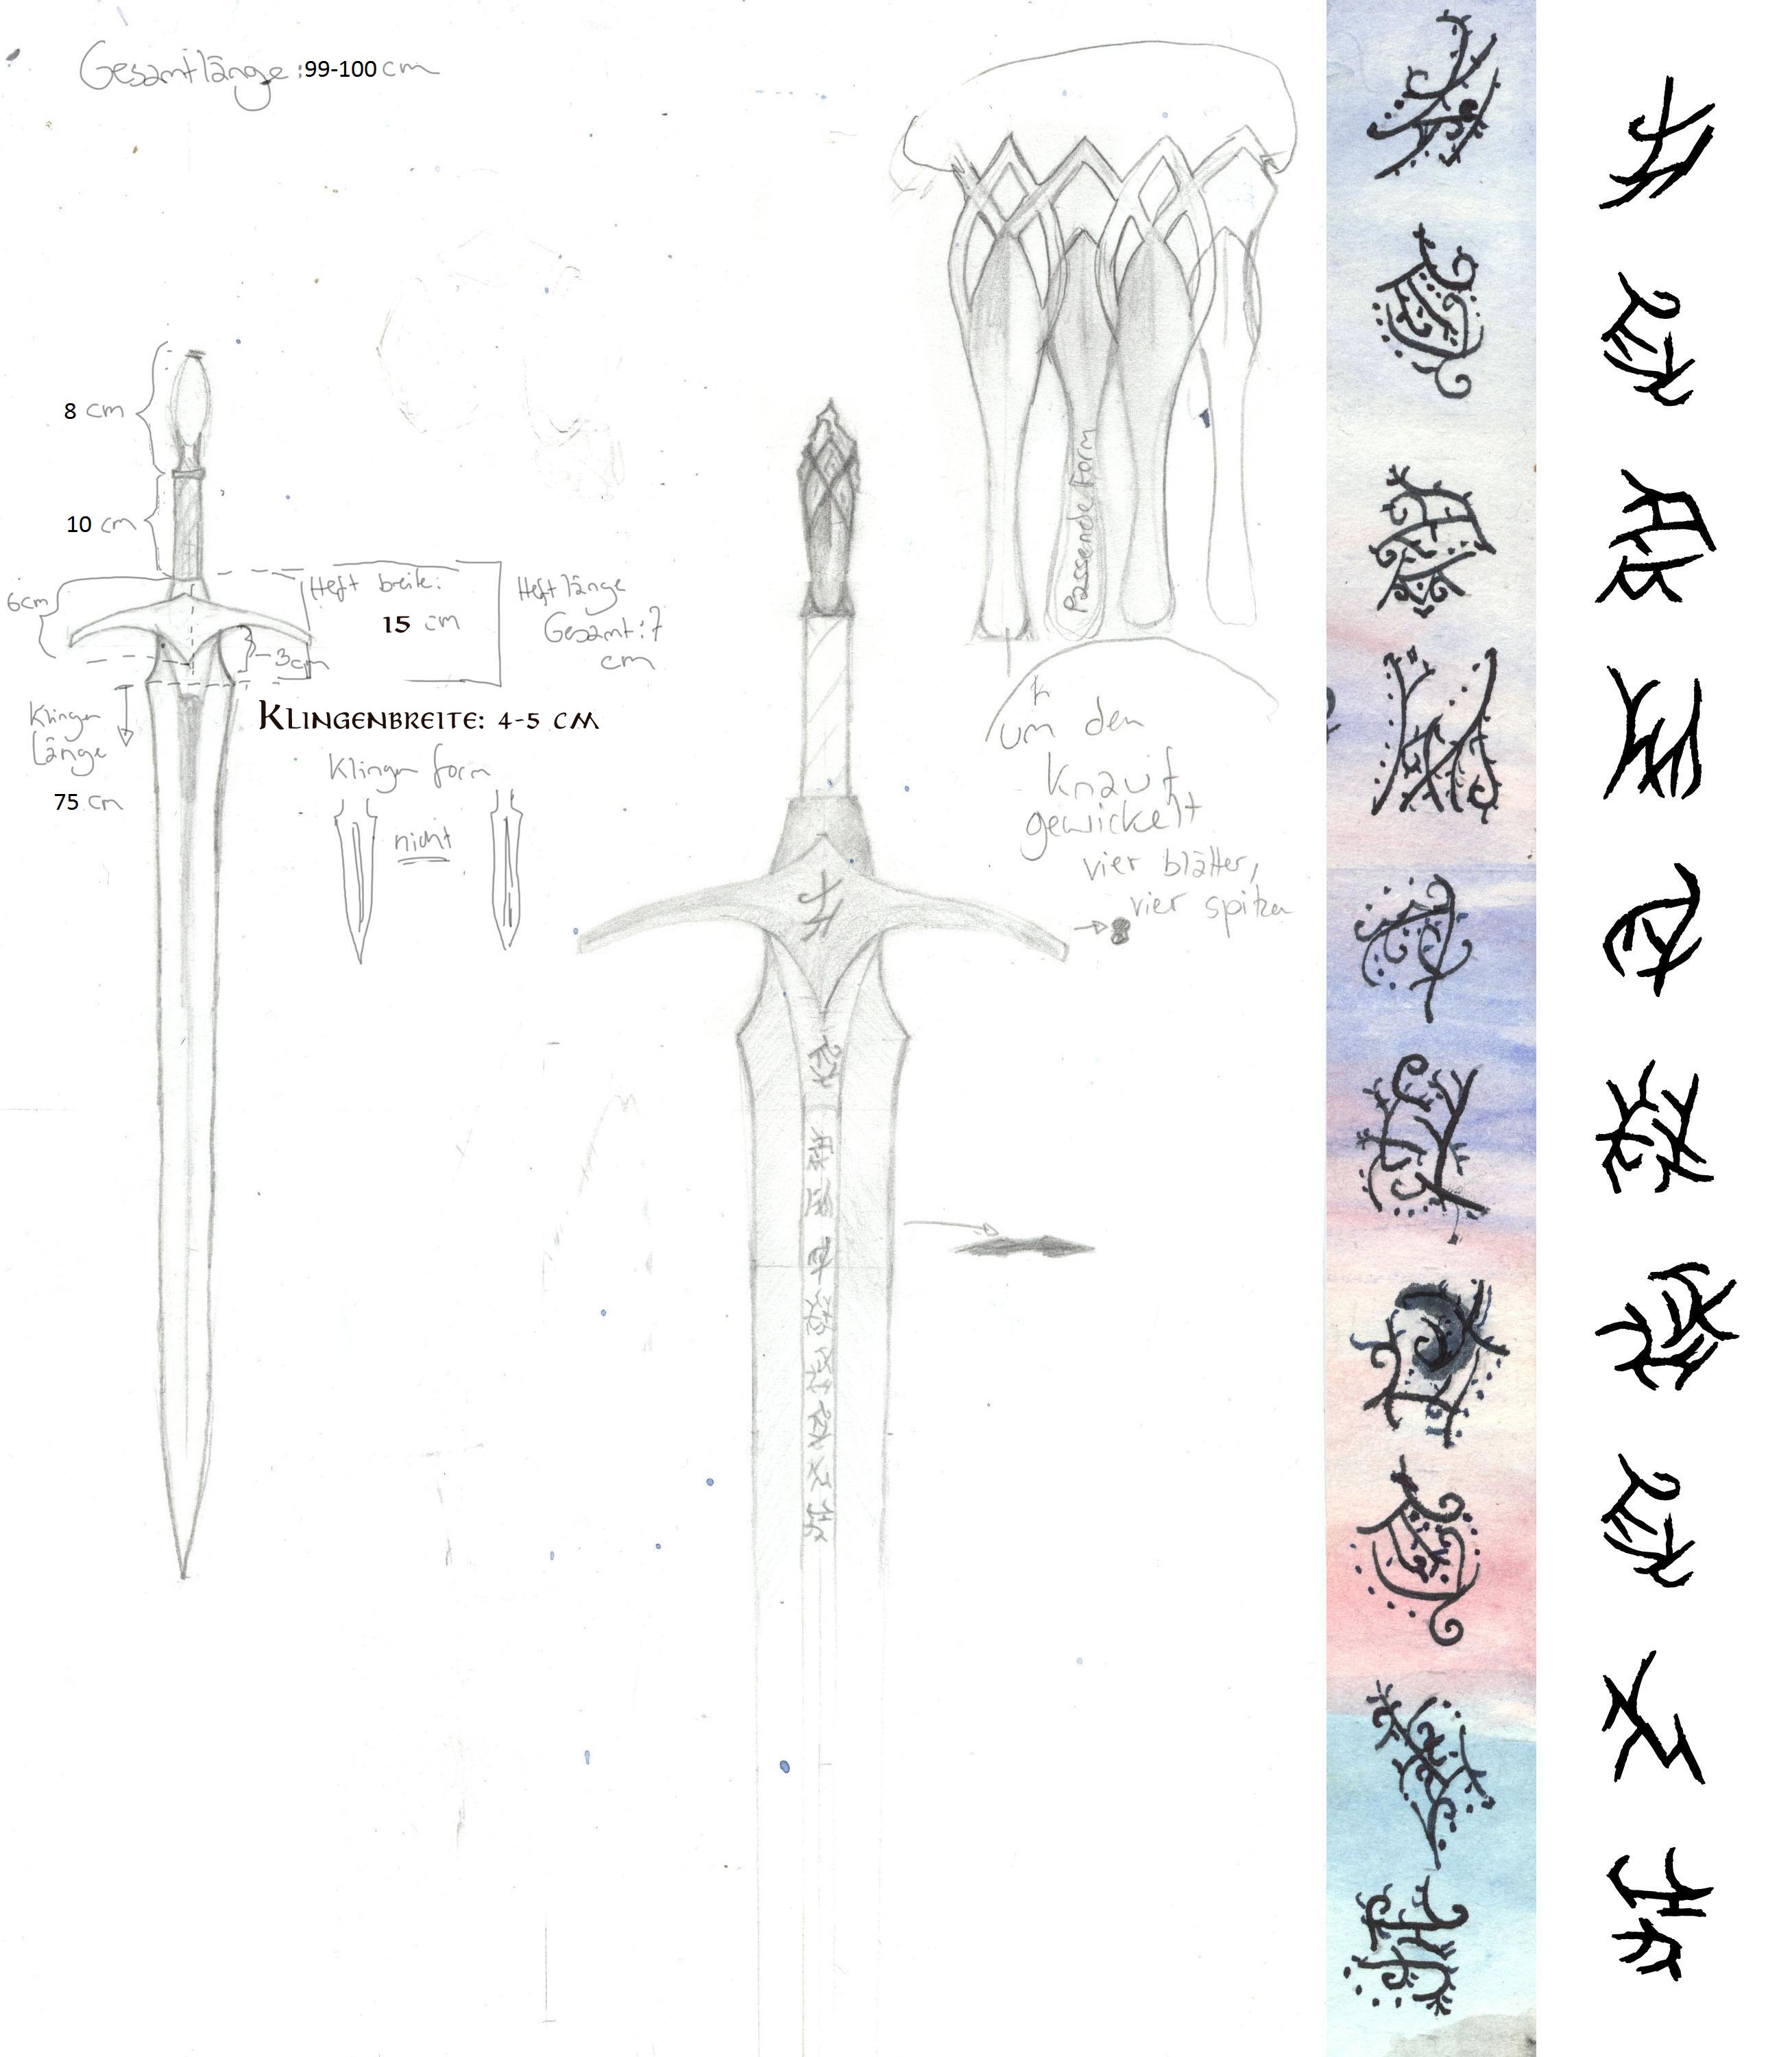 Gesamtlänge: 99-100 cm
8 cm
10 cm
6cm
Heft breite:
15 cm
Heft länge
Gesamt: 7
cm
3cm
Klingen
länge
75 cm
KLINGENBREITE: 4-5 CM
Klingen form
nicht
Passende Form
um den
Knauf
gewickelt
vier blätter,
vier spitzen